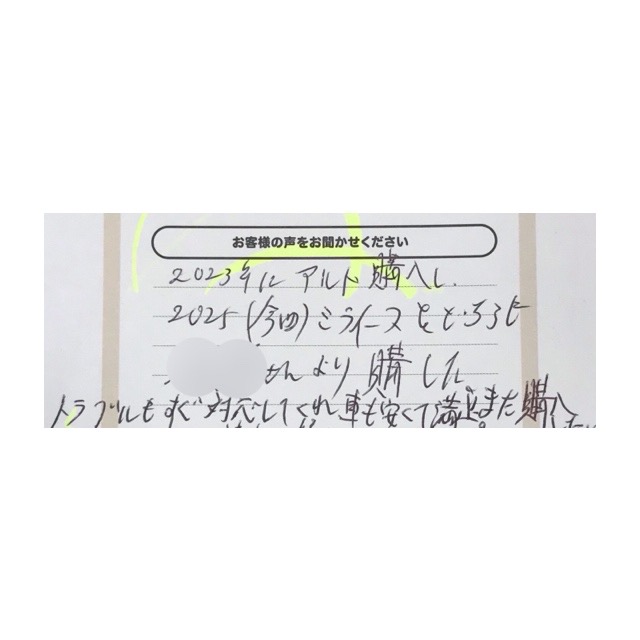 お客様の声をお聞かせください
2023年にアルト購入し、
2025(今回)ミライースを
さんより購した
トラブルもすぐ対応してくれ車も安くて満足また購入